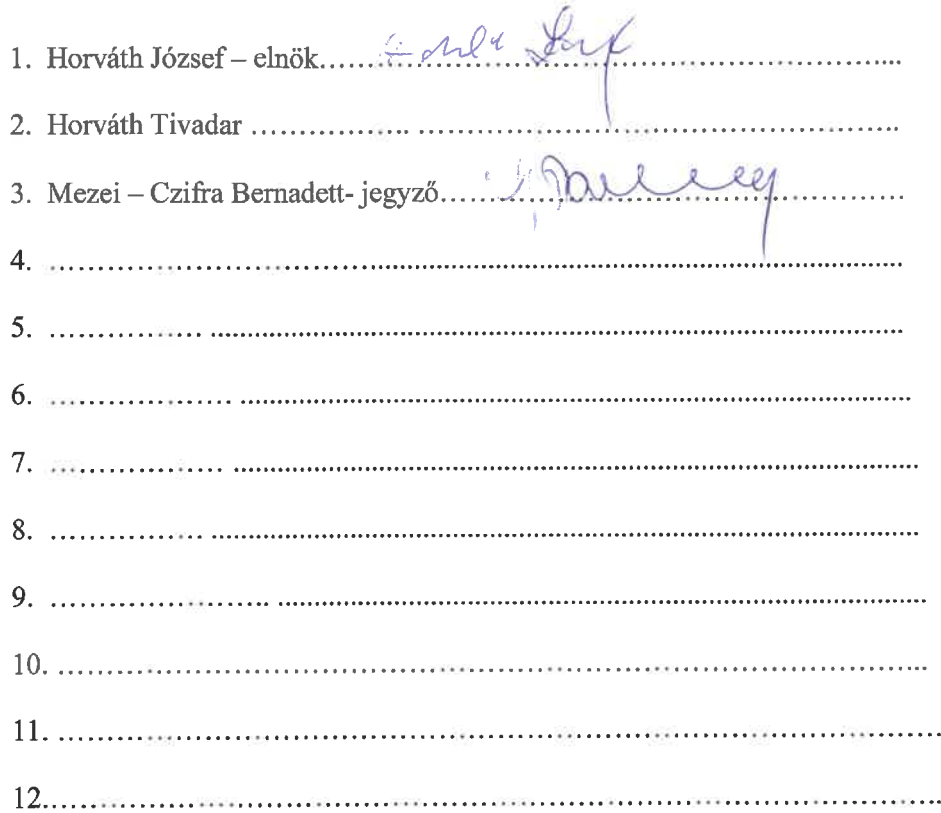 1. Horváth József – elnök..............................................................
2. Horváth Tivadar ................ ..............................................................
3. Mezei – Czifra Bernadett- jegyző..............................................................
4. ..............................................................
5. ............... ..............................................................
6. .................. ..............................................................
7. ................. ..............................................................
8. ............... ..............................................................
9. ...................... ..............................................................
10. ..............................................................
11. ..............................................................
12..............................................................